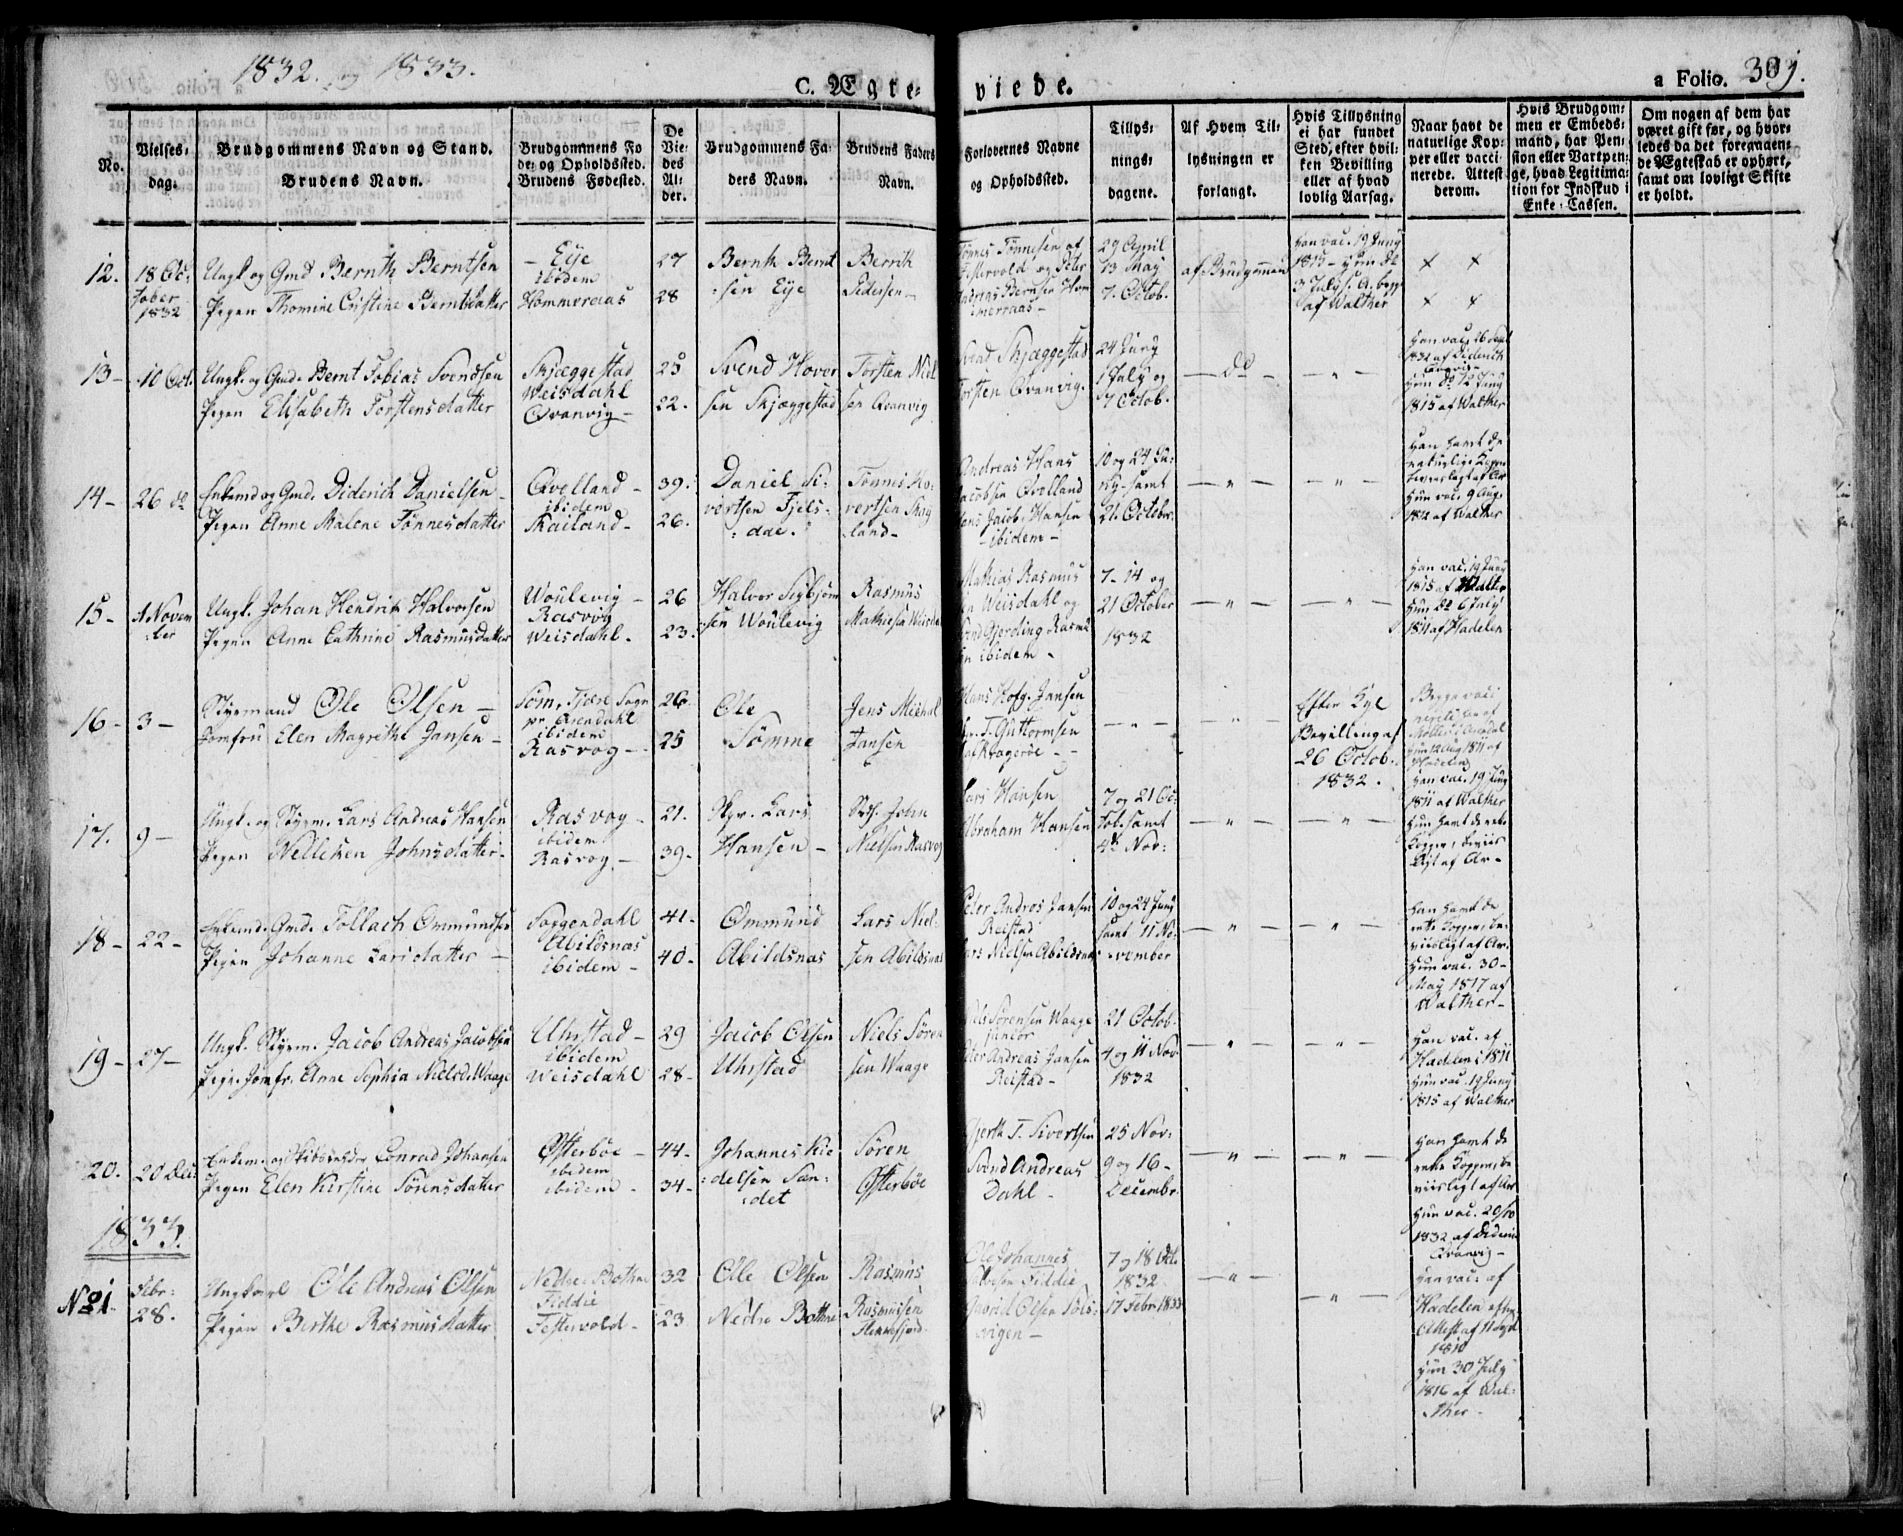 1832. og 1833.
C. Ægte-viede.
a Folio. 309.
No.
Vielses-dag.
Brudgommens Navn og Stand.
Brudens Navn.
Brudgommens Fø
de- og Opholdssted.
Brudens Fødested.
De
Vie-
des
Al-
der.
Brudgommens Fa-
ders Navn.
Brudens Faders
Navn.
Forlovernes Navne
og Opholdssted.
Tillys-
nings-
dagene.
Af Hvem Til-
lysningen er
forlangt.
Hvis Tillysning
ei har fundet
Sted, efter hvil-
ken Bevilling
eller af hvad
lovlig Aarsag.
Naar havt de
naturlige Kop-
per eller vacci-
nerede. Attest
derom.
Hvis Brudgom-
men er Embeds-
mand, har Pen-
sion eller Vartpen-
ge, hvad Legitima-
tion for Indskud i
Enke-Cassen.
Om nogen af dem har
været gift før, og hvor-
ledes da det foregaaen-
de Ægteskab er ophørt,
samt om lovligt Skifte
er holdt.
12. 18 Oc-
tober
1832
Ungk og Gmd Bernth Berntsen
Pigen Thomine Cristine Berntsdatter
Eije
ibidem
Hommeraas
27
28
Bernth Bernt
sen Eije
Berrik
Pedersen
Tønnes Tønnesen af
Festervold og Peter
Andreas Berntsen Hom
merraas
29 April
13 May
7. Octob.
af Brudgommen
han vac. 19 Juny
1815 - hun do
3 July s. A. begge
af Walther
× ×
× ×
13 - 10 Oct.
Ungk. og Gmd. Bernt Tobias Svendsen
Pigen Elisabeth Torstensdatter
Skjæggestad
Weisdahl
Qvanvig
25
22.
Svend Hover
sen Skjæggestad
Torsten Niel
sen Qvanvig
Svend Skjæggestad
Torsten Qvanvig.
24 Juny
1 July og
7 Octob.
do
Han vac. 26 Sept
1832 af Diderich
Qvanvig
Hun do 12 Juny
1815 af Walther
14 - 26 do
Enkemd og Gmd. Diderich Danielsen
Pigen Anne Malene Tønnesdatter
Qvelland
ibidem
Skailand
39.
26.
Daniel Si-
vertsen Fjels-
dae.
Tønnes Ho-
vertsen Skay
land
Andreas Hans
Jacobsen Qvelland
Hans Jacob Hansen
ibidem
10 og 24 Ju-
ny samt
21. October
Han havt de
naturlige Kopper
beviisligt af Ar
Hun vac. 9 Aug.
1812 af Walther
15 - 1 Novem
ber
Ungk. Johan Hendrik Halvorsen
Pigen Anne Cathrine Rasmusdatter
Woulevig
Rasvog
Weisdahl.
26
23.
Halvor Sigbjørn
sen Woulevig
Rasmus
Mathiesen Weisdal
Mathias Rasmus
sen Weisdahl og
Svend Gjerding Rasmu
sen ibidem
7 - 14 og
21 October
1832
Han vac. 19 Juny
1815 af Walter
Hun do 6 July
1811 af Hadelen
16 - 3
Styrmand Ole Olsen
Jomfru Elen Magrethe Jansen
Søm, Fjære Sogn
pr. Arendahl
ibidem
Rasvog
26.
25
Ole
Sømme
Jens Michal
Jansen
Hans Hofg. Jansen
T. Guttormsen
Efter Kgl
Bevilling af
26 Octob.
1832.
Begge vaci
nerede han af
Møller i Arendal
Hun 12 Aug 1811 af
Hadeleng
17. 9
Ungk. og Styrm. Lars Andreas Hansen
Pigen Nelleken Johnsdatter
Rasvog
ibidem
Rasvog
21.
39.
Skpr. Lars
Hansen
John
Nielsen Rasvog
Lars Hansen
Abraham Hansen
7 og 21 Oc-
tob. samt
4de Nov.
Han vac. 19 Juny
1811 af Walther
Hun havt de rette
Kopper, beviis
ligt af Ar
18 - 22
Enkemd. Gmd. Tollach Ommundsen
Pigen Johanne Larsdatter
Soggendahl
Abildsnæs
ibidem
41.
40.
Ommund
Abildsnas
Lars Niel
sen Abildsnas
Peter Andres Jansen
Reistad
Lars Nielsen Abildsnas
10 og 24 Juny
samt 11 No-
vember
Han havt de
rette Kopper, be-
viisligt af Ar.
Hun vac. 30
May 1817 af
Walther
19 - 27
Ungk. Styrm. Jacob Andreas Jacobsen
Pige. Jomfr. Anne Sophia Nielsd. Waage
Uhrstad
ibidem
Weisdahl
29
28
Jacob Olsen
Uhrstad
Niels Søren
sen Waage
Niels Sørensen Waage
junior
Peter Andreas Jansen
Reistad
21 Octob.
4 og 11 Nov.
1832
Han vac. af
Hadelen i 1811
Hun vac. 19 Juny
1815 af Walther
20. 20 Dec.
Enkem. og Skibbygger Conrad Johansen
Pigen Elen Kirstine Sørensdatter
Østerbøe
ibidem
ibidem
44
34
Johannes Kie
delsen San-
det
Søren
Østerbøe
Gjerth T. Sivertsen
Svend Andreas
Dahl
25 Nov.
9 og 16
Decembr.
Han havt de
rette Kopper, be
viisligt af Ar
Hun vac. 20/10
1832 af Diderich
Qvanvig
1833.
No 1. Febr.
28.
Ungkarl Ole Andreas Olsen
Pigen Berthe Rasmusdatter
Nedre Bothne
Fiddie
Festervold
32
23
Ole Olsen
Nedre Bothne
Rasmus
Rasmusen
Flekkefjord
Ole Johannes
Olsen Fiddie
Gabriel Olsen Sols-
vigen
7 og 18 Oct.
1832
17 Febr 1833
Han vac. af
Hadelen efter
Attest af 11 Sept
1810
Hun 30 July
1816 af Wal-
ther